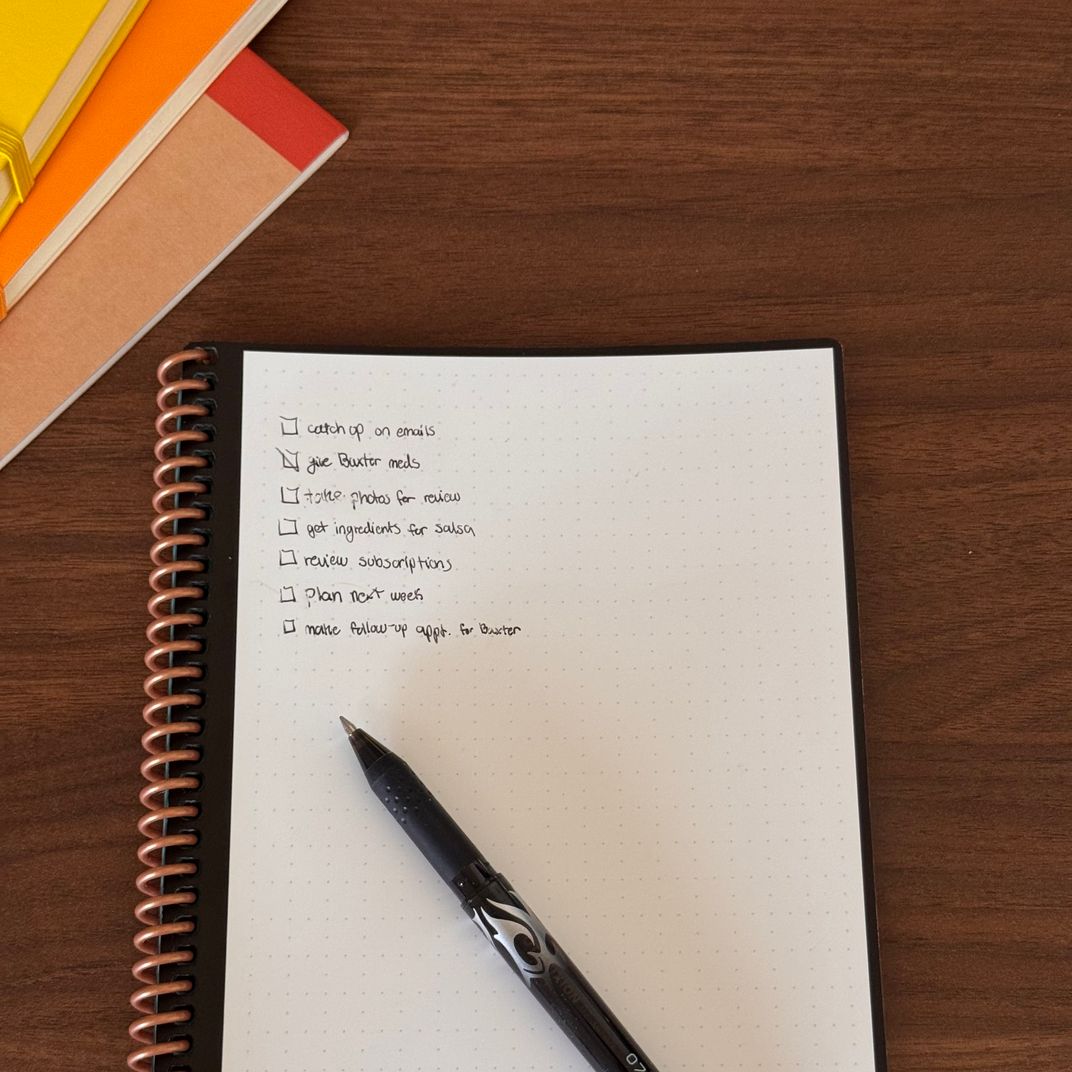 catch up on emails
give Baxter meds
take photos for review
get ingredients for salsa
review subscriptions
plan next week
make follow-up appt. for Baxter
07